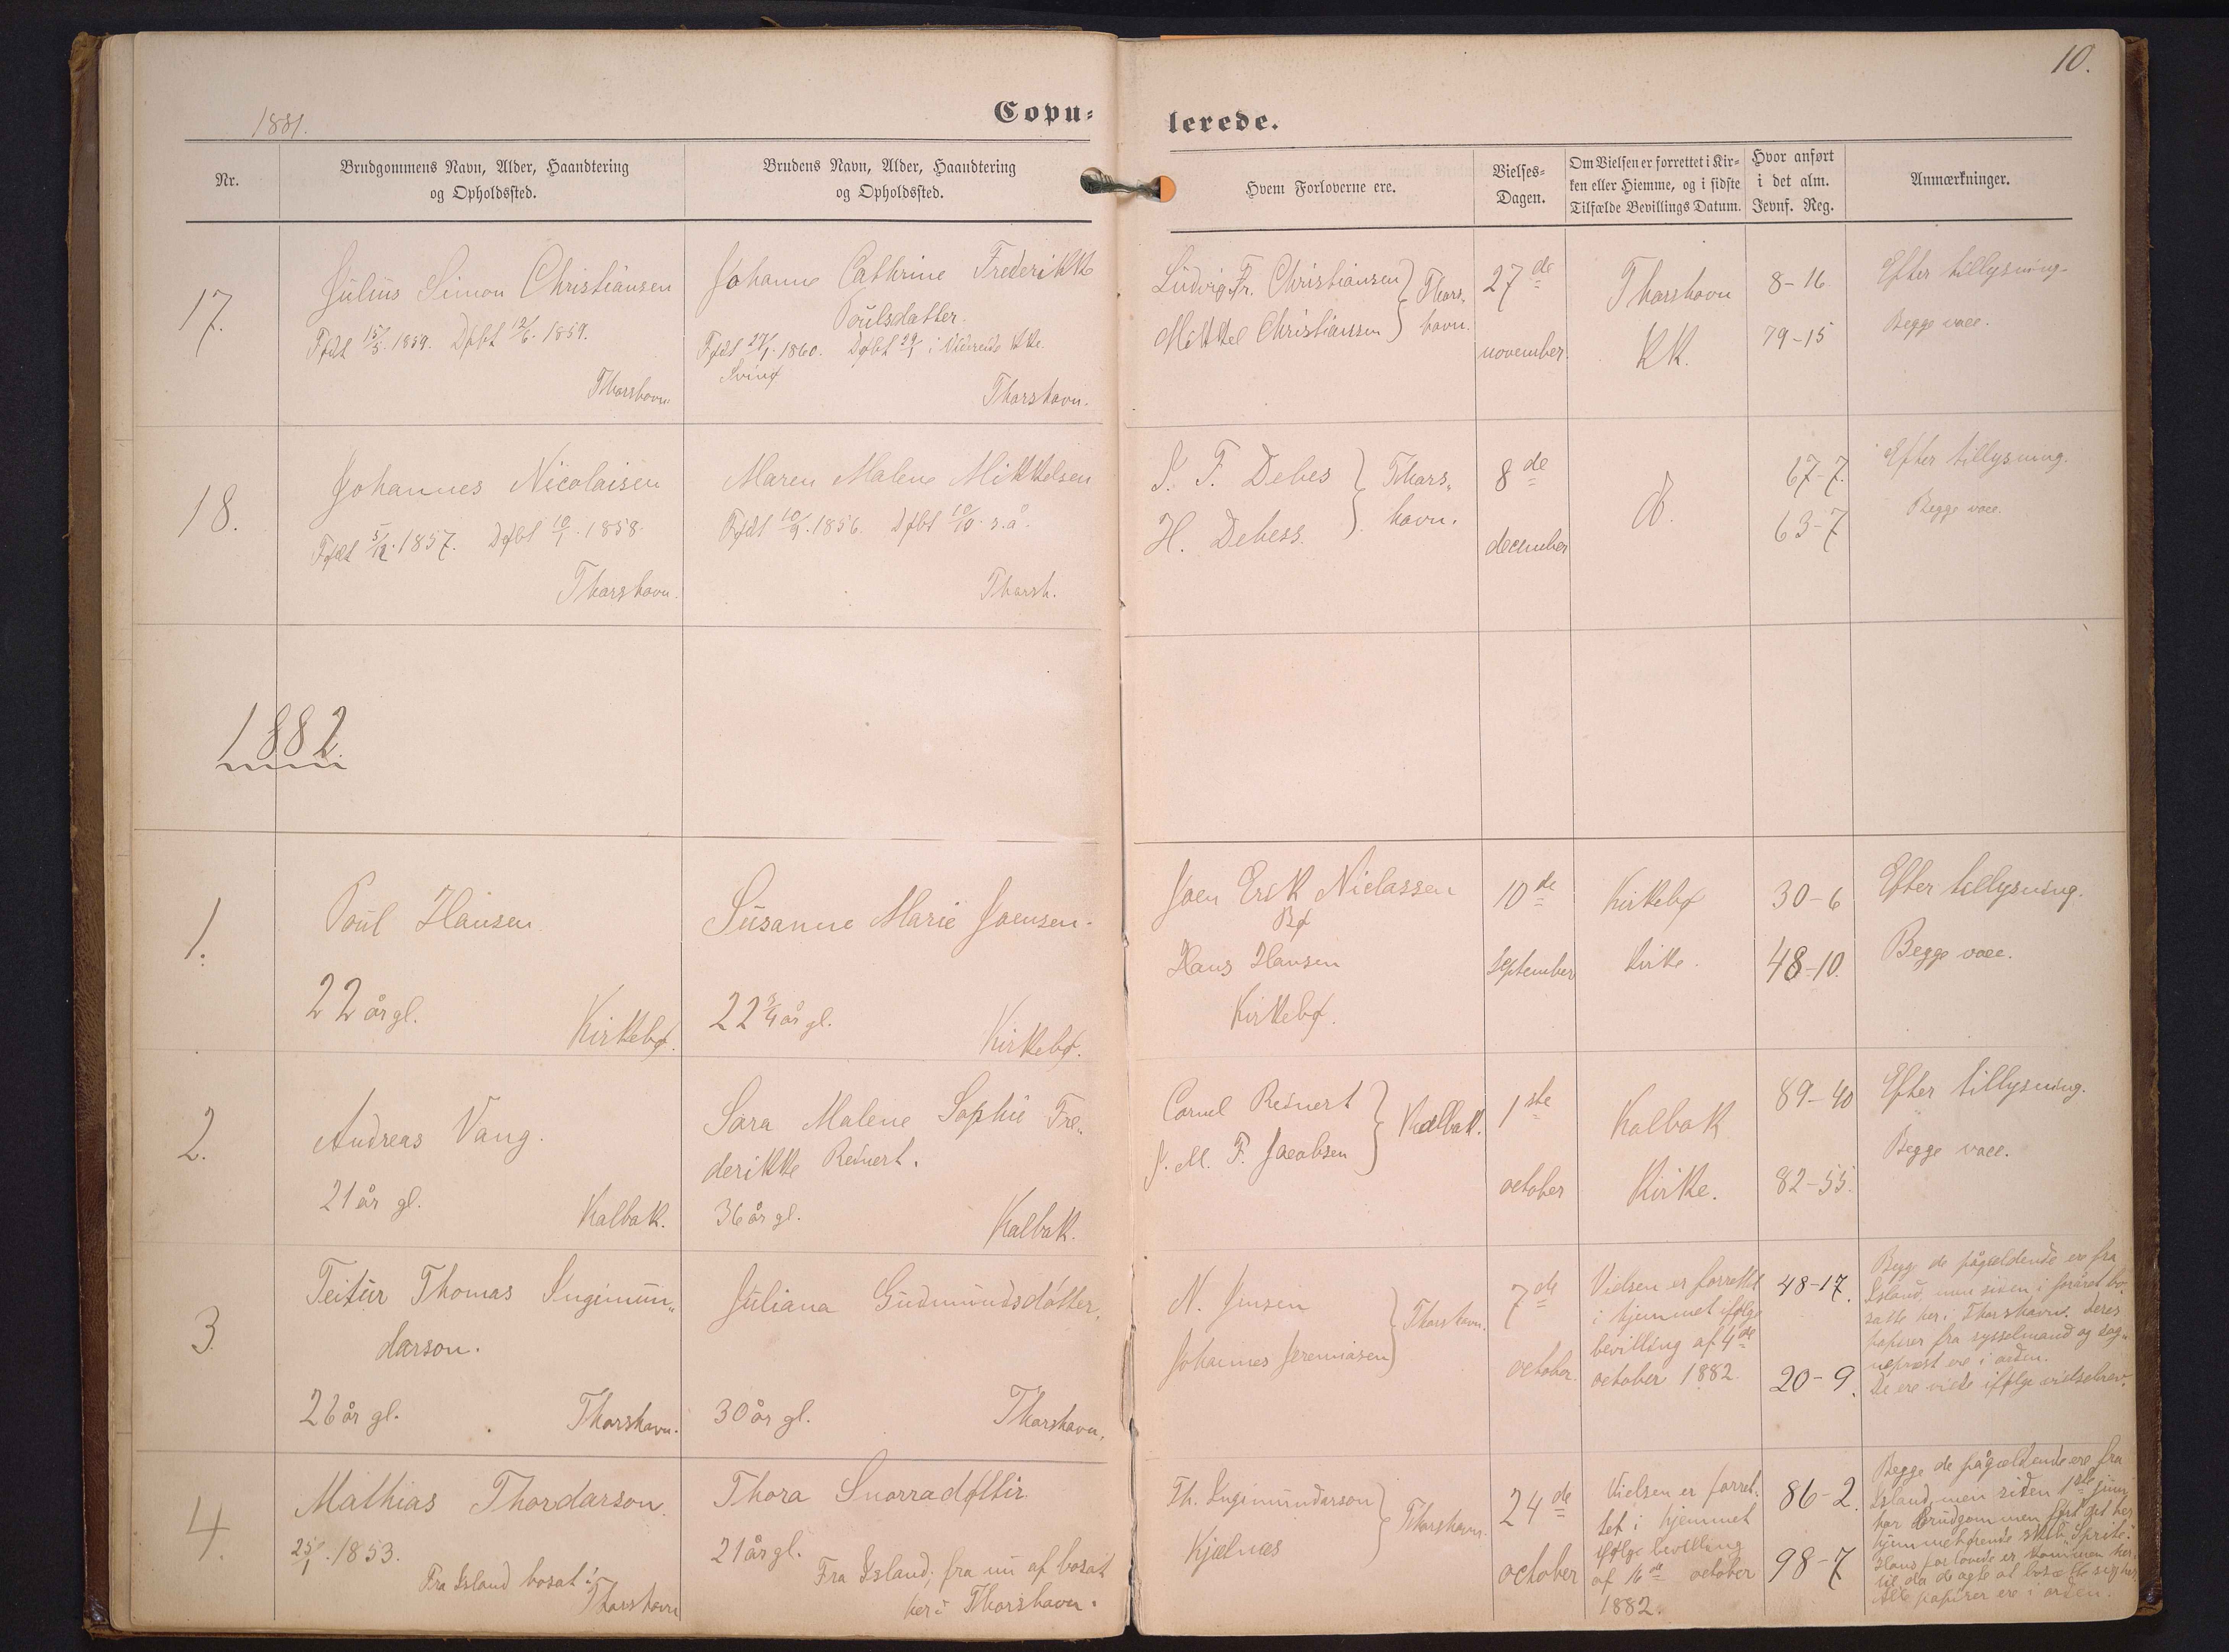 10.
1881.
Copu-
lerede.
Nr.
Brudgommens Navn, Alder, Haandtering
og Opholdssted.
Brudens Navn, Alder, Haandtering
og Opholdssted.
Hvem Forloverne ere.
Vielses-
Dagen.
Om Vielsen er forrettet i Kir-
ken eller Hiemme, og i sidste
Tilfælde Bevillings Datum.
Hvor anført
i det alm.
Jevnf. Reg.
Anmærkninger.
17.
Julius Simon Christiansen
Født 15/5. 1859. Døbt 12/6. 1859.
Thorshavn.
Johanne Cathrine Frederikke
Poulsdatter.
Født 27/1. 1860. Døbt 29/1 i Viderøide KKe.
Svinø
Thorshavn.
Ludvig Fr. Christiansen
Mikkel Christianssen
Thors-
havn.
27de
november
Thorshavn
KK.
8-16.
79-15
Efter tillysning.
Begge vacc.
18.
Johannes Nicolaisen
Født 5/12. 1857. Døbt 10/1. 1858.
Thorshavn.
Maren Malene Mikkelsen
Født 10/9. 1856. Døbt 10/10 s.å.
Thorsh.
J. F. Debes
H. Debess.
Thors-
havn.
8de
december
67-7.
63-7
Efter tillysning.
Begge vacc.
1882.
1.
Poul Hansen
22 år gl.
Kirkebø.
Susanne Marie Joensen.
22 3/4 år gl.
Kirkebø.
Joen Erik Niclassen
Bø
Hans Hansen
Kirkebø.
10de
september
Kirkebø
kirke.
30-6
48-10.
Efter tillysning.
Begge vacc.
2.
Andreas Vang.
21 år gl.
Kalbak.
Sara Malene Sophie Fre-
derikke Reinert.
36 år gl.
Kalbak.
Reinert
J. M. F. Jacobsen
Kalbak.
1ste
october
Kalbak
Kirke.
89-40
82-55.
Efter tillysning.
Begge vacc.
3.
Teitur Thomas Ingimun-
darson.
26 år gl.
Thorshavn.
Juliana Gudmundsdótter.
30 år gl.
Thorshavn.
N. Jensen
Johannes Jeremiasen
Thorshavn.
7de
october.
Vielsen er forrettet
i hjemmet ifølge
bevilling af 4de
october 1882.
48-17.
20-9.
Begge de pågældende er fra
Island, men siden i foråret bo-
satte her i Thorshavn. Deres
papirer fra sysselmand og sog-
nepræst ere i orden.
De ere viede ifølge vielsebrev.
4.
Mathias Thordarson.
25/1. 1853.
Fra Island bosat i
Thorshavn
Thora Snorradøttir
21 år gl.
Fra Island, fra nu af bosat
her i Thorshavn.
Th. Ingimundarson
Kjølnæs
Thorshavn.
24de
october
Vielsen er forret-
tet i hjemmet
ifølge bevilling
af 16de october
1882.
86-2.
98-7
Begge de pågældende ere fra
Island, men siden 1ste juni
har Brudgommen ført det her
hjemmehørende skib "Sprite".
Hans forlovede er kommen her-
til, da de agte at bosætte sig her.
Alle papirer ere i orden.